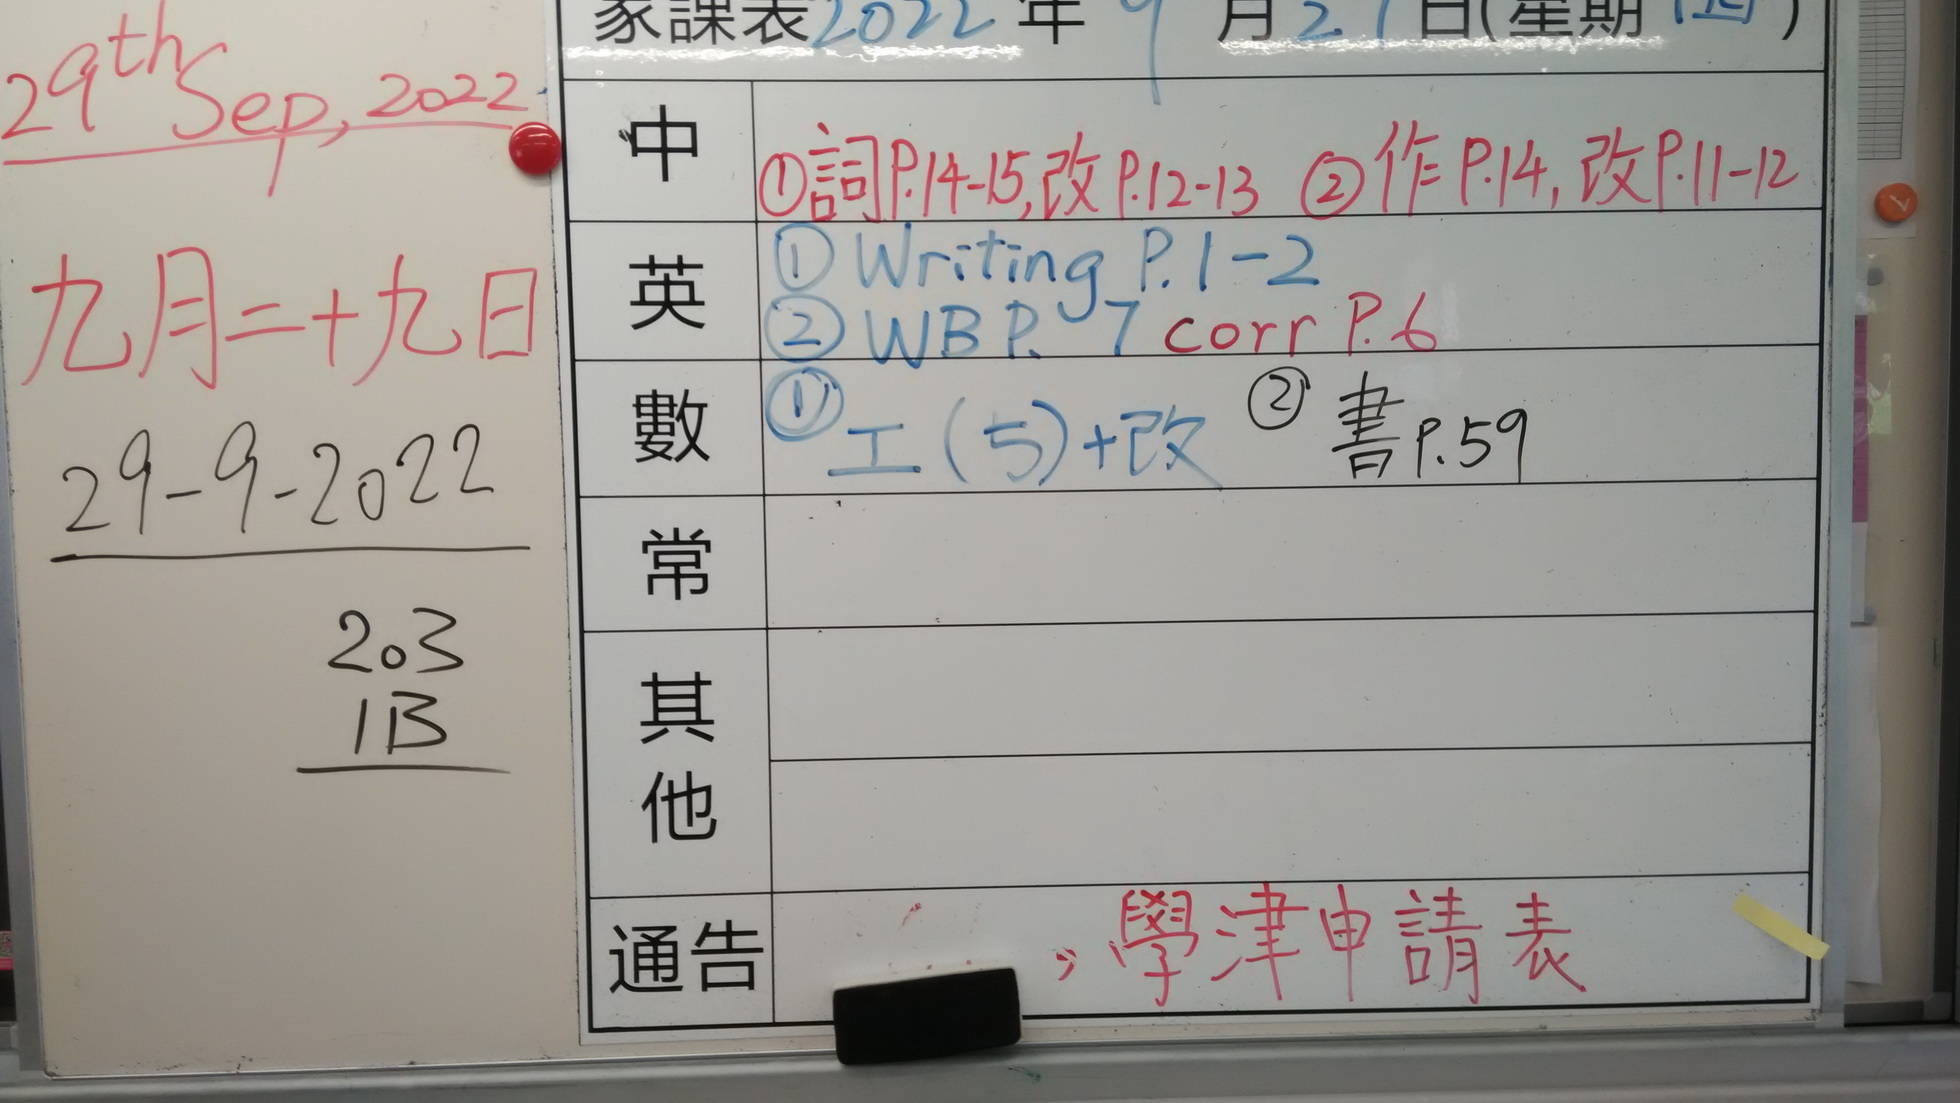 29th Sep, 2022
九月二十九日
29-9-2022
203
1B
家課表2022年9月29日(星期四)
中
①詞P.14-15,改P.12-13 ②作P.14,改P.11-12
英
①Writing P.1-2
②WB P. 7 corr P.6
數
①工(5)+改 ②書P.59
常
其他
通告
學津申請表